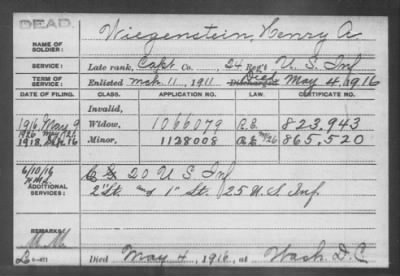 DEAD.
NAME OF SOLDIER: Wiegenstein, Henry A.
SERVICE: Late rank, Capt Co. , 24 Reg't U. S. Inf
TERM OF SERVICE: Enlisted Mch. 11, 1911 Discharged Died May 4, 1916
DATE OF FILING. CLASS. APPLICATION NO. LAW. CERTIFICATE NO.
Invalid,
1916, May 9 Widow, 1066079 R.S. 823,943
1918, Sep. 16 Minor, 1128008 865,520
6/10/16
ADDITIONAL SERVICES: 20 U S Inf
2" Lt. and 1" Lt. 25 U. S Inf.
REMARKS:
Died May 4, 1916, at Wash. D.C